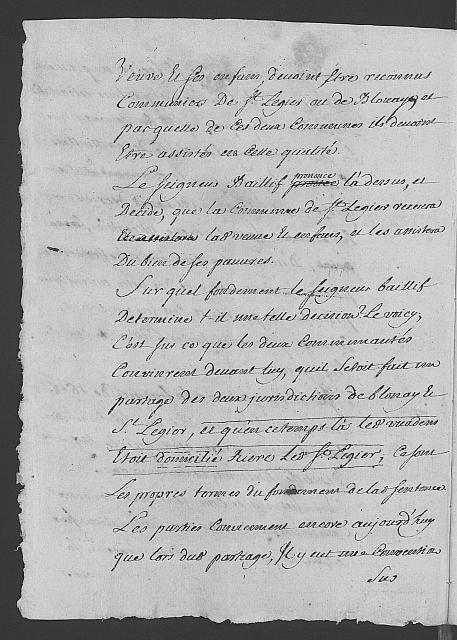 Veuve Et ses enfans, devoint Etre reconnus
Communiers De St. Legier ou de Blonay, et
par quelle de Ces deux Communes ils devoint
Etre assistés en Cette qualité.
Le Seigneur Baillif prononce là dessus, et
Decide, que la Commune de St. Legier recevra
Et assistera lade veuve Et enfans, et les assistera
Du bien de ses pauvres.
Sur quel fondement le Seigneur baillif
Determine t-il une telle decision? Le voicy;
C'est sur ce que les deux Communautés
Convinrent devant luy, quil S'etoit fait un
partage des deux jurisdictions de blonay Et
St. Legier, et qu'en ce temps là led
Etoit domicilié Riere led St. Legier, Ce sont
Les propres termes du fondement de lade Sentence
Les parties Conviennent encore aujourd'huy
que lors dud partage, Il y eut une Convention
Sus